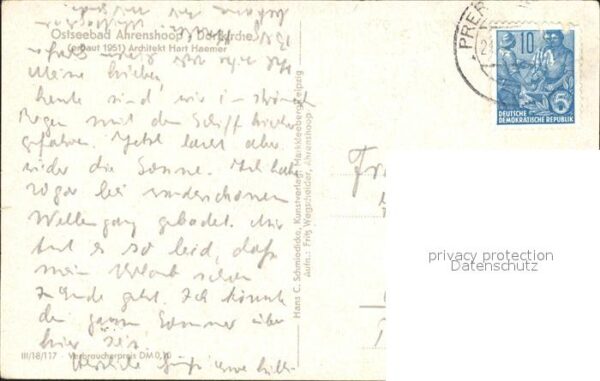 Ostseebad Ahrenshoop, Dorfkirche
(erbaut 1951) Architekt Hart Haemer
Meine Lieben,
heute sind wir im strömenden
Regen mit dem Schiff hierher
gefahren. Jetzt lacht aber
wieder die Sonne. Ich habe
sogar bei wunderschönem
Wellengang gebadet. Mir
tut es so leid, daß
mein Urlaub schon
zu Ende geht. Ich könnte
den ganzen Sommer über
hier sein.
Herzliche Grüße
III/18/117 Verbraucherpreis DM 0,10
Hans C. Schmiedicke, Kunstverlag, Markkleeberg/Leipzig
Aufn.: Fritz Wegscheider, Ahrenshoop
PRER
10
DEUTSCHE
DEMOKRATISCHE REPUBLIK
privacy protection
Datenschutz